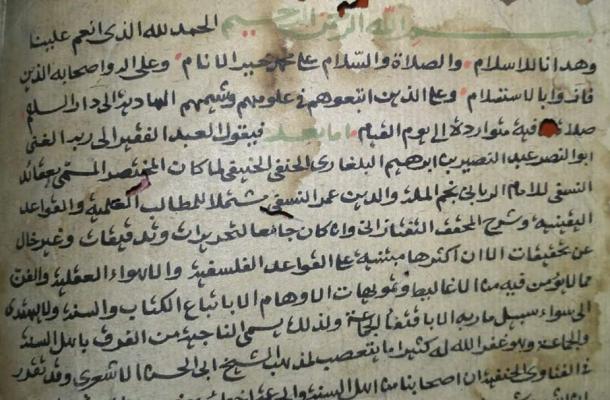 بسم الله الرحمن الرحيم الحمد لله الذى انعم علينا
وهدانا للاسلام والصلاة والسلام على محمد خير الانام وعلى اله واصحابه الذين
فازوا بالاستسلام وعلى الذين اتبعوهم فى علومهم وشيمهم الهادية الى دار السلم
صلاة متواردة الى يوم القيام اما بعد فيقول العبد الفقير الى ربه الغنى
ابو النصر عبد النصير بن ابرهيم البلغارى الحنفى الحنيفى لما كان المختصر المسمى بعقائد
النسفى للامام الربانى نجم الملة والدين عمر النسفى مشتملا للمطالب العلمية والقواعد
اليقينية وشرح المحقق التفتازانى وان كان جامعا لتحريرات وتدقيقات وغير خال
عن تحقيقات الا ان اكثرها مبتنية على القواعد الفلسفية والاهواء العقلية والفن
مما لا يؤمن فيه من الاغاليط وتمويهات الاوهام الا باتباع الكتاب والسنة ولا يهتدى
الى سواء سبيل ماربه الا باقتفا الجماعة ولذلك يسمى الناجية من الفرق باهل السنة
والجماعة وهو غفر الله له كثيرا ما يتعصب لمذهب الشيخ ابى الحسن الاشعرى وقد تقرر
فى الفتاوى الحنفية ان اصحابنا من اهل السنة